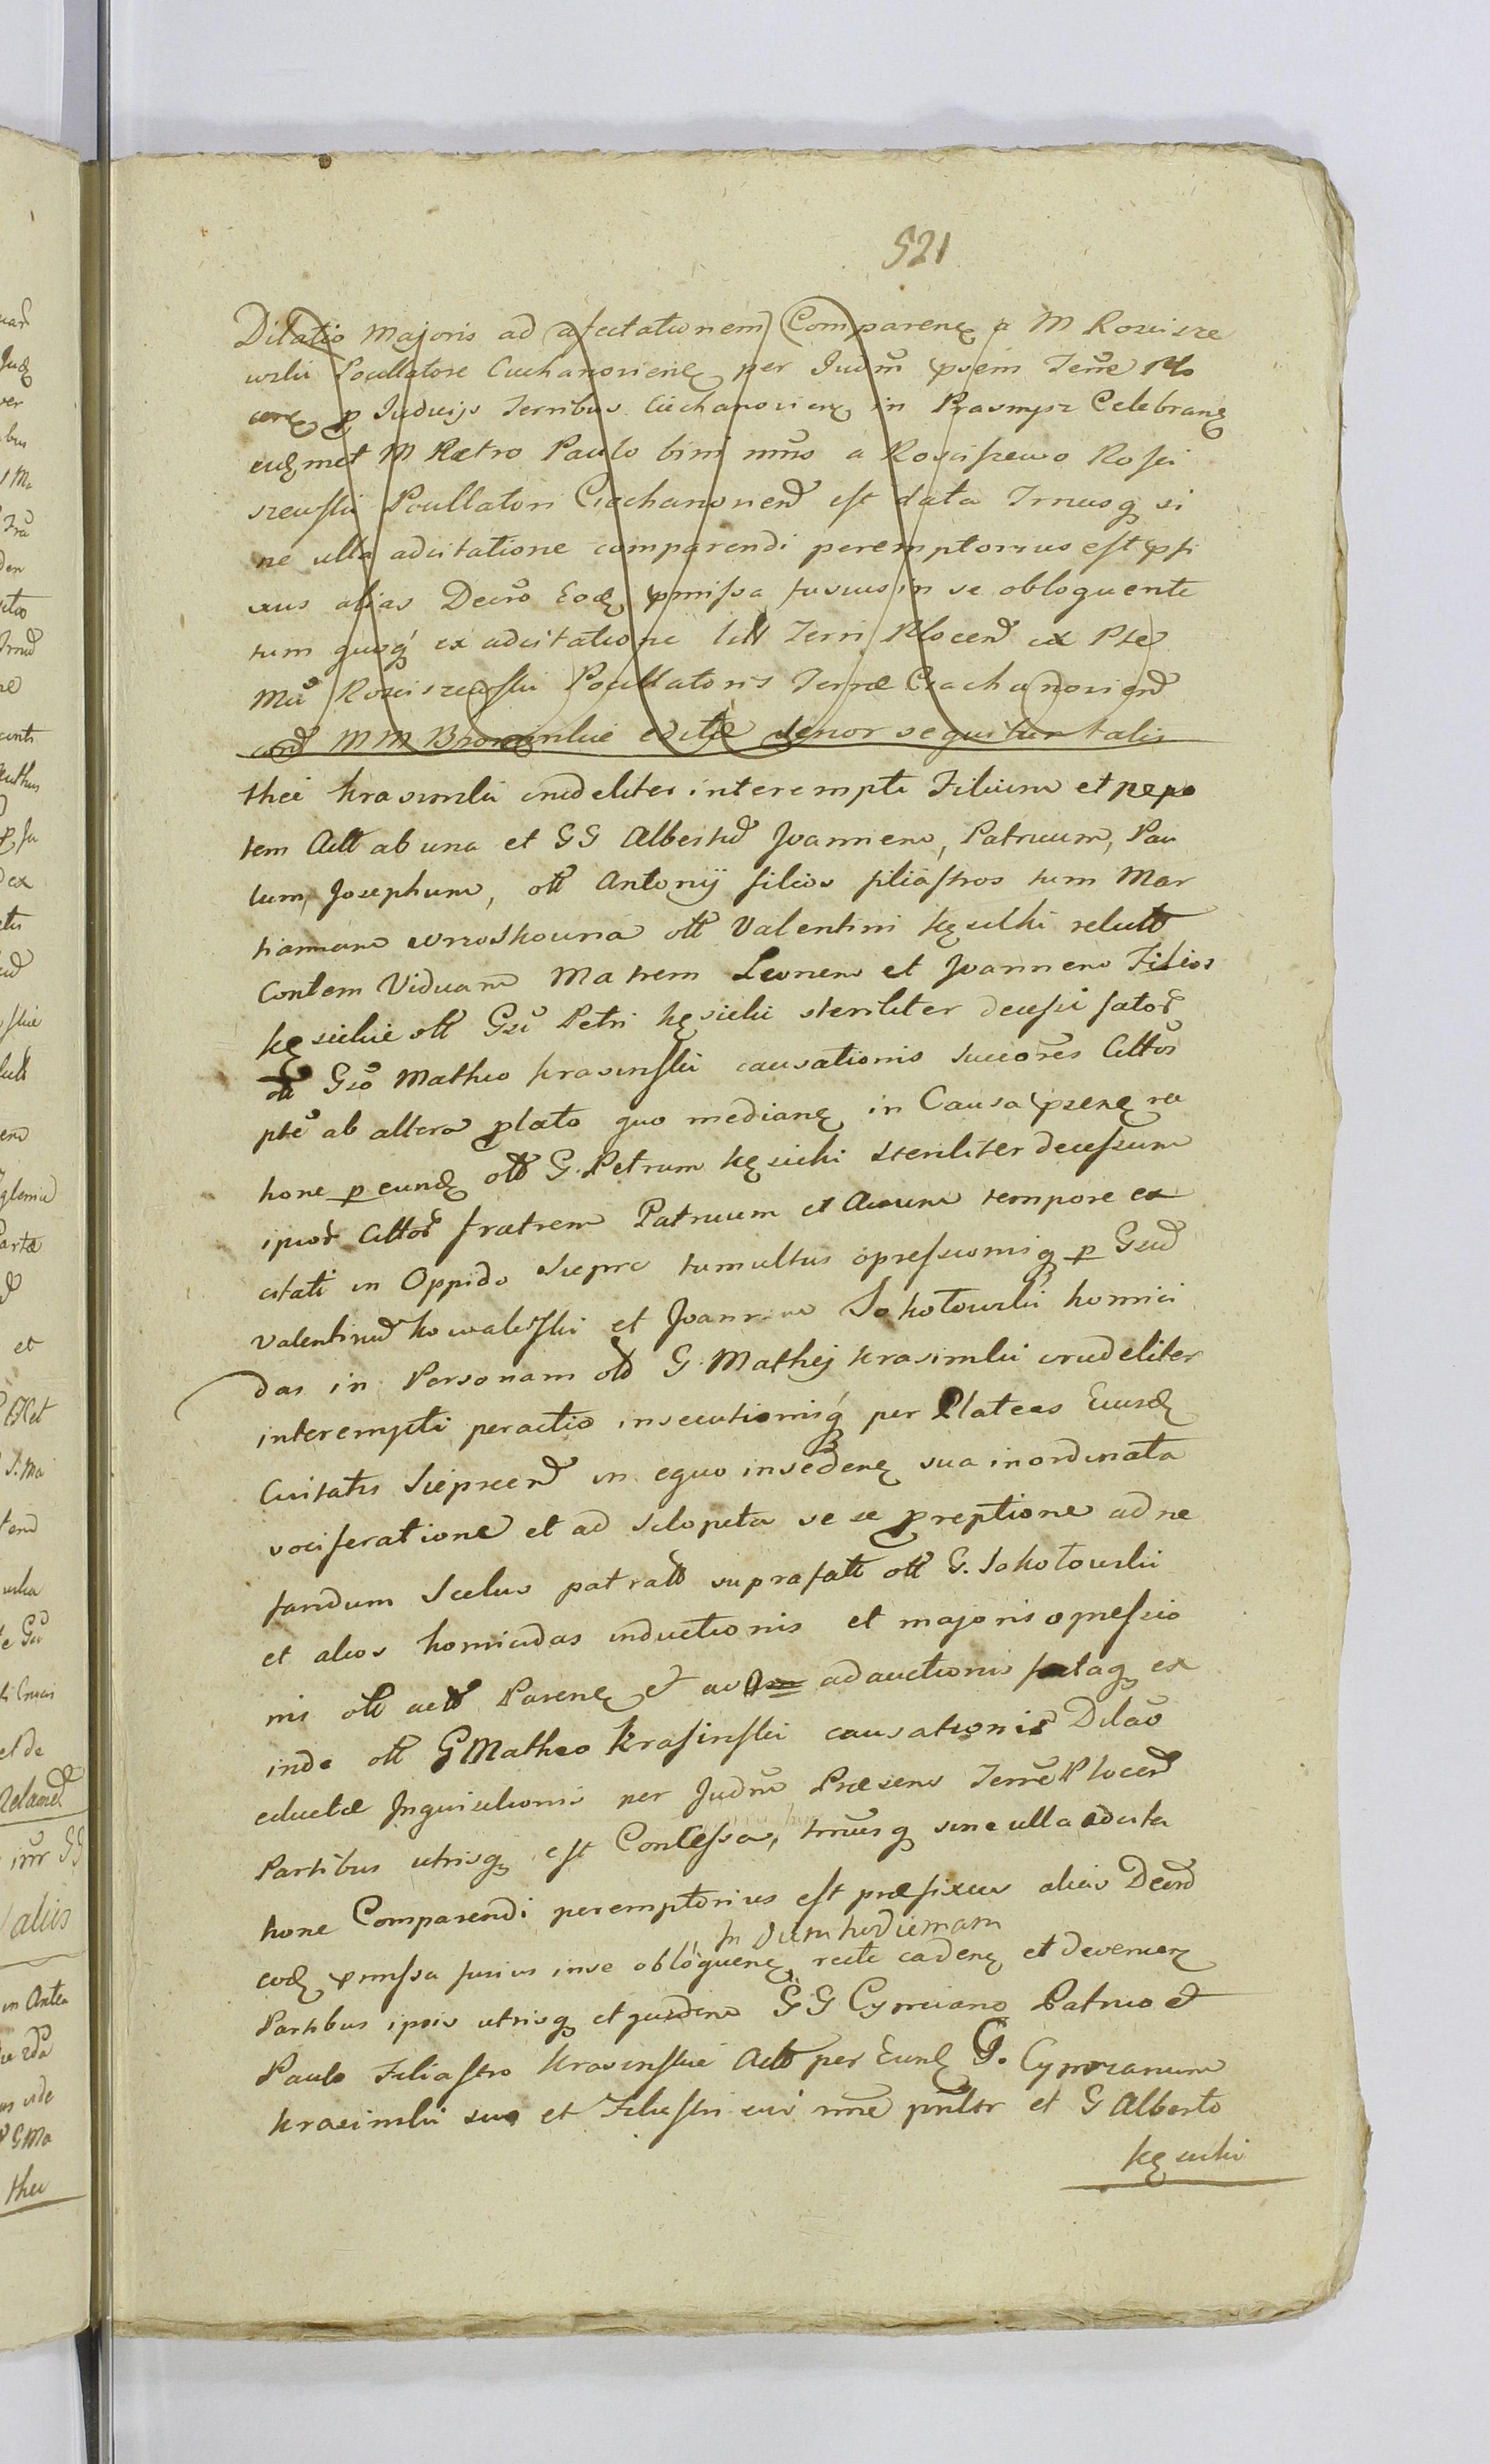 521
Dilatio Majoris ad afectationem Comparenę a M Rościsze
wski Pocillatore Ciechanoviene per Judm psem Terre Plo
cenę p Judicijs Terribus Ciechanovienę in Prasnysz Celebranę
eidmet M Petro Paulo bini mnis a Rosciszewo Rosci
szewski Pocillatori Ciechanovien est data Trnusq si
ne ulla adcitatione comparendi peremptorius est pfi
xus alias Decro Eod pmissa fusius in se obloquente
tum quoq ex adcitatione Terri Plocen ex Pte
M Rościszewski Pocillatoris Terræ Ciechanovien
cond MM Bromirskie edita tenor sequitur talis
thei Krasinski crudeliter interempti Filium et nepo
tem Actt ab una et GG Albertu Joannem, Patruum, Pau
lum, Josephum, ott Antonij filios filiastros tum Mar
riannam wroskowna ott Valentini Kęsicki relict
Contem Viduam Matrem Leonem et Joannem Filios
Kęsickie ott Gsi Petri Kęsicki steriliter decessi fator
ott Gso Matheo Krasinski causationis succores Cittos
pte ab altera plato quo medianę in Causa psenę ra
tione p eund ott G. Petrum Kęsicki steriliter decessum
ipsor Cittor fratrem Patruum et Avum tempore ex
citati in Oppido Sieprc tumultus opressionisq p Gsu
Valentinu Kowalewski et Joannem Sokołowski homici
das in Personam ott G. Mathej Krasinski crudeliter
interempti peractio insecutionisq per Plateas Eiusd
Civitatis Siepreen in equo insedenę sua inordinata
vociferatione et ad sclopeta se se preptione ad ne
fandum Scelus patratt suprafatt ott G. Sokołowski
et alios homicidas inductionis et majoris opressio
nis ott actt Parenę et adauctionis fatæq ex
inde ott G Matheo Krasinski causationis Dilao
eductæ Inquisitionis per Judm Præsens Terre Plocen
Partibus utrisq est Concessa, trnusq sine ulla adcita
tione Comparendi peremptorius est præfixus alias Decro
In diem hodiernam
eod pmissa fusius in se obloquenę, recte cadenę et devenienę
Partibus ipsis utrisq et quidem GG Cypriano Patruo et
Paulo Filiastro Krasinskie Actt per Eund G. Cyprianum
Krasinski suo et Filiastri sui nne pnltr et G Alberto
Kęsicki